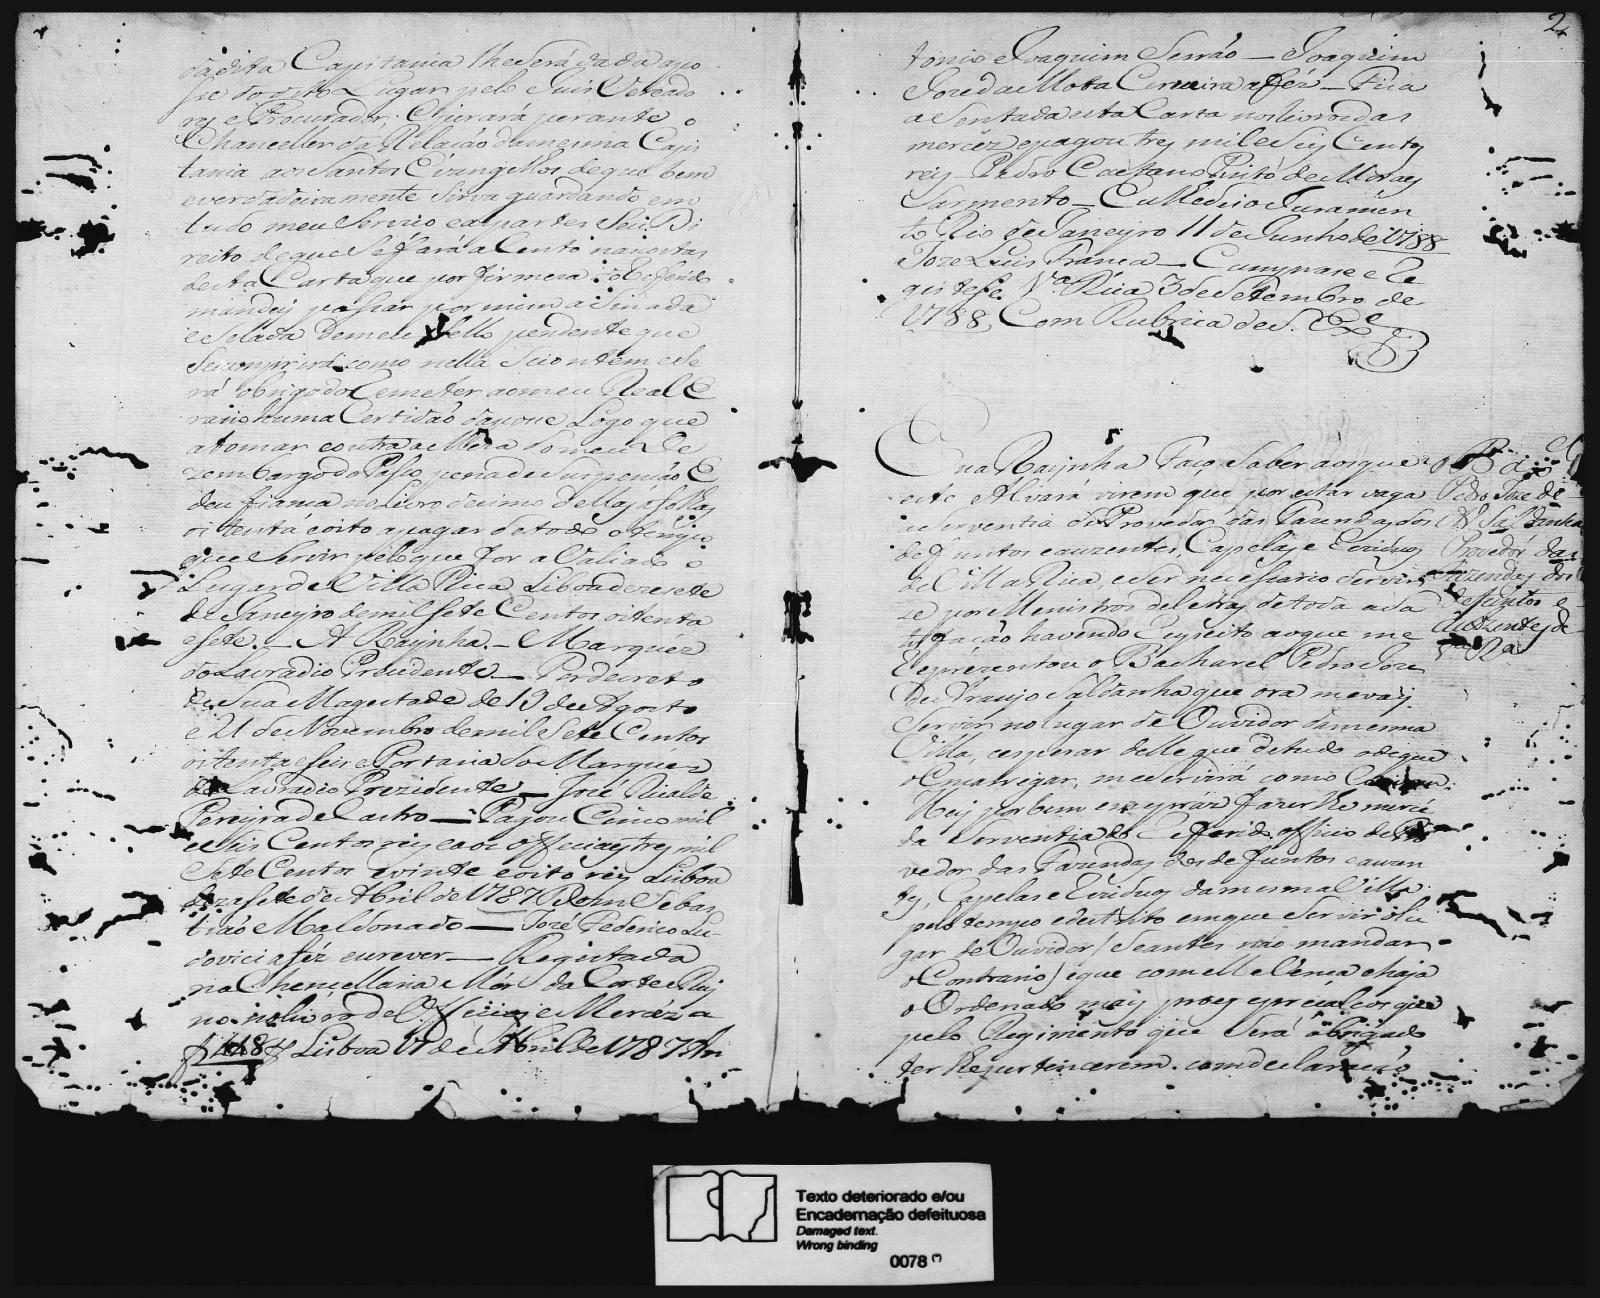 dadita Capitania lhe Será dada apo
se do dito Lugar pelo Juis Veread
res e Procurador; e jurará perante o
Chanceller da Relaçaõ damesma Capi
tania aos Santos Evangelhos deque bem
everdadeiramente Sirva guardando em
tudo meu Servico easpartes Seu Di
reito deque Sefará aCento nascostas
desta Carta que por firmeza
mandei passar por mim aSinada
eSelada demeu Sello pendente que
Secumprirá como nella Secontem eSe
rá obrigado Remeter aomeu Real E
rario huma Certidaõ daposse Logo que
atomar contra a Meza domeu De
zembargo do Paço penade Suspençaõ E
deu fiança no Livro decimo dellas afolhas
oitenta eoito apagar detodo otempo
que Servir pelo que for aValiado o
Lugar de Villa Rica Lisboa dezesete
de Janeyro demil Sete Centos oitenta
eSete. — A Raynha. — Marquéz
do Lavradio Prezidente — Por decreto
de Sua Magestade de 19 de Agosto
e 21 de Novembro demil Sete Centos
oitenta eSeis e Portaria do Marquez
do Lavradio Prezidente — José Ricalde
Pereyra de Castro — Pagou Cinco mil
eSeis Centos reis eaos officiaes tres mil
Sete Centos evinte eoito reis Lisboa
dezasete de Abril de 1787 Dom Sebas
tiaõ Maldonado — José Federico Lu-
dovici afez escrever — Registada
na Chencellaria Mór da Corte e Rey
no nolivro de Officios e Mercéz a
f 118 Lisboa 17 de Abril de 1787 An
2
tonio Joaquim Serraõ — Joaquim
Joze da Mota Cerveira afez — Fica
aSentada esta Carta nos livros das
mercéz epagou tres mil e Seis Centos
reis Pedro Caetano Pinto de Moraes
Sarmento — Eu Juramen
to Rio de Janeyro 11 de Junho de 1788
Joze Luis França — Cumprase e Re
gistese. Va Rica 3 de Setembro de
1788, Com Rubrica de S. Exe
Eu a Raynha Faço Saber aosque
este Alvará virem que por estar vaga
a Serventia de Provedor das Fazendas dos
defuntos eauzentes, Capelas, e Reziduos
de Villa Rica, eSer necessario Servir
se por Menistros deletras detoda a Sa
tisfaçaõ havendo Respeito aoque me
Reprezentou o Bacharel Pedro Joze
de Araujo Saldanha que ora mevay
Servir no lugar de Ouvidor damesma
Villa, cesperar delle que detudo odeque
o Emcarregar, meServirá como
Hey por bem emepráz fazerlhe mercé
da Serventia do Referido officio de Pro
vedor das Fazendas dos defuntos eauzen
tes, Capelas e Reziduos damesma Villa
pelo tempo edestrito emque Servir olu
gar de Ouvidor (Seantes naõ mandar
o Contrario) eque comelle Vença ehaja
o Ordenado mais proes eprecalcos que
pelo Regimento que Será obrigado
ter lhe pertencerem. comdeclaraçaõ
Pedro Joze de
Ar.o Saldanha
Provedór das
Fazendas dos
defuntos e
auzentes de
Va Ra
Texto deteriorado e/ou
Encadernação defeituosa
Damaged text.
Wrong binding
0078 (*)